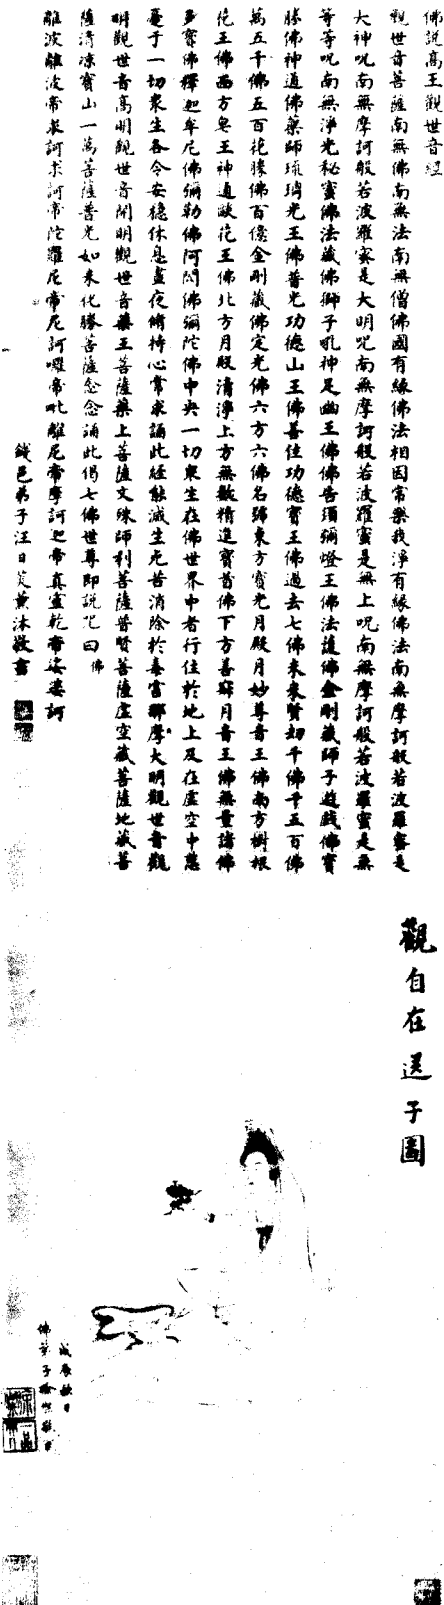 佛說高王觀世音經
觀世音菩薩南無佛南無法南無僧佛國有緣佛法相因常樂我淨有緣佛法南無摩訶般若波羅蜜是
大神咒南無摩訶般若波羅蜜是大明咒南無摩訶般若波羅蜜是無上咒南無摩訶般若波羅蜜是無
等等咒南無淨光秘蜜佛法藏佛獅子吼神足幽王佛佛告須彌燈王佛法護佛金剛藏師子遊戲佛寶
勝佛神通佛藥師琉璃光王佛普光功德山王佛善住功德寶王佛過去七佛未來賢劫千佛千五百佛
萬五千佛五百花勝佛百億金剛藏佛定光佛六方六佛名號東方寶光月殿月妙尊音王佛南方樹根
花王佛西方皂王神通燄花王佛北方月殿清淨上方無數精進寶首佛下方善寂月音王佛無量諸佛
多寶佛釋迦牟尼佛彌勒佛阿閦佛彌陀佛中央一切眾生在佛世界中者行住於地上及在虛空中慈
憂于一切眾生各令安穩休息晝夜脩持心常求誦此經能滅生死苦消除於毒害那摩大明觀世音觀
明觀世音高明觀世音開明觀世音藥王菩薩藥上菩薩文殊師利菩薩普賢菩薩虛空藏菩薩地藏菩
薩清涼寶山一萬菩薩普光如來化勝菩薩念念誦此偈七佛世尊即說咒曰 佛
離波離波帝求訶求訶帝陀羅尼帝尼訶囉帝毗離尼帝摩訶迦帝真靈乾帝娑婆訶
弟子汪日 薰沐敬書
觀自在送子圖
戊辰秋日
佛弟子